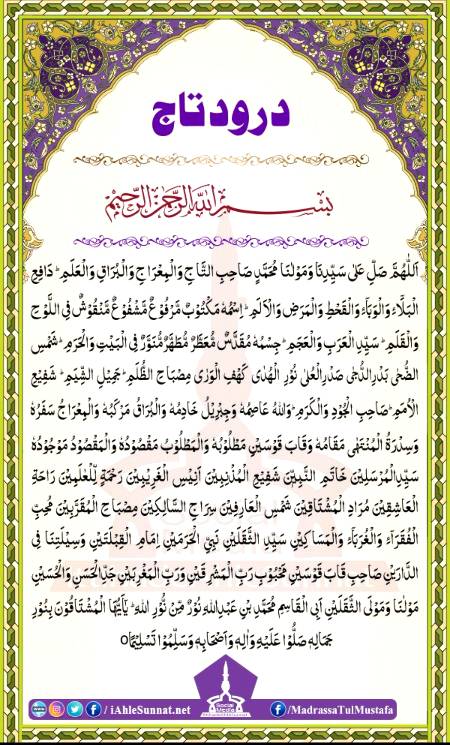 درود تاج
بسم الله الرحمن الرحیم
اَللّٰهُمَّ صَلِّ عَلٰی سَیِّدِنَا وَمَوْلٰنَا مُحَمَّدٍ صَاحِبِ التَّاجِ وَالْمِعْرَاجِ وَالْبُرَاقِ وَالْعَلَمِ ؕ دَافِعِ
الْبَلَآءِ وَالْوَبَآءِ وَالْقَحْطِ وَالْمَرَضِ وَالْاَلَمِ ؕ اِسْمُهٗ مَكْتُوْبٌ مَّرْفُوْعٌ مَّشْفُوْعٌ مَّنْقُوْشٌ فِی اللَّوْحِ
وَالْقَلَمِ ؕ سَیِّدِ الْعَرَبِ وَالْعَجَمِ ؕ جِسْمُهٗ مُقَدَّسٌ مُّعَطَّرٌ مُّطَهَّرٌ مُّنَوَّرٌ فِی الْبَیْتِ وَالْحَرَمِ ؕ شَمْسِ
الضُّحٰی بَدْرِ الدُّجٰی صَدْرِ الْعُلٰی نُوْرِ الْهُدٰی كَهْفِ الْوَرٰی مِصْبَاحِ الظُّلَمِ ؕ جَمِیْلِ الشِّیَمِ ؕ شَفِیْعِ
الْاُمَمِ ؕ صَاحِبِ الْجُوْدِ وَالْكَرَمِ ؕ وَاللّٰهُ عَاصِمُهٗ وَجِبْرِیْلُ خَادِمُهٗ وَالْبُرَاقُ مَرْكَبُهٗ وَالْمِعْرَاجُ سَفَرُهٗ
وَسِدْرَةُ الْمُنْتَهٰی مَقَامُهٗ وَقَابَ قَوْسَیْنِ مَطْلُوْبُهٗ وَالْمَطْلُوْبُ مَقْصُوْدُهٗ وَالْمَقْصُوْدُ مَوْجُوْدُهٗ
سَیِّدِ الْمُرْسَلِیْنَ خَاتَمِ النَّبِیّٖنَ شَفِیْعِ الْمُذْنِبِیْنَ اَنِیْسِ الْغَرِیْبِیْنَ رَحْمَةٍ لِّلْعٰلَمِیْنَ رَاحَةِ
الْعَاشِقِیْنَ مُرَادِ الْمُشْتَاقِیْنَ شَمْسِ الْعَارِفِیْنَ سِرَاجِ السَّالِكِیْنَ مِصْبَاحِ الْمُقَرَّبِیْنَ مُحِبِّ
الْفُقَرَآءِ وَالْغُرَبَآءِ وَالْمَسَاكِیْنِ سَیِّدِ الثَّقَلَیْنِ نَبِیِّ الْحَرَمَیْنِ اِمَامِ الْقِبْلَتَیْنِ وَسِیْلَتِنَا فِی
الدَّارَیْنِ صَاحِبِ قَابَ قَوْسَیْنِ مَحْبُوْبِ رَبِّ الْمَشْرِقَیْنِ وَرَبِّ الْمَغْرِبَیْنِ جَدِّ الْحَسَنِ وَالْحُسَیْنِ
مَوْلٰنَا وَمَوْلَی الثَّقَلَیْنِ اَبِی الْقَاسِمِ مُحَمَّدِ بْنِ عَبْدِ اللّٰهِ نُوْرٍ مِّنْ نُّوْرِ اللّٰهِ ؕ یٰۤاَیُّهَا الْمُشْتَاقُوْنَ بِنُوْرِ
جَمَالِهٖ صَلُّوْا عَلَیْهِ وَاٰلِهٖ وَاَصْحَابِهٖ وَسَلِّمُوْا تَسْلِیْمًا٥
/ iAhleSunnat.net
Social Media
/MadrassaTulMustafa